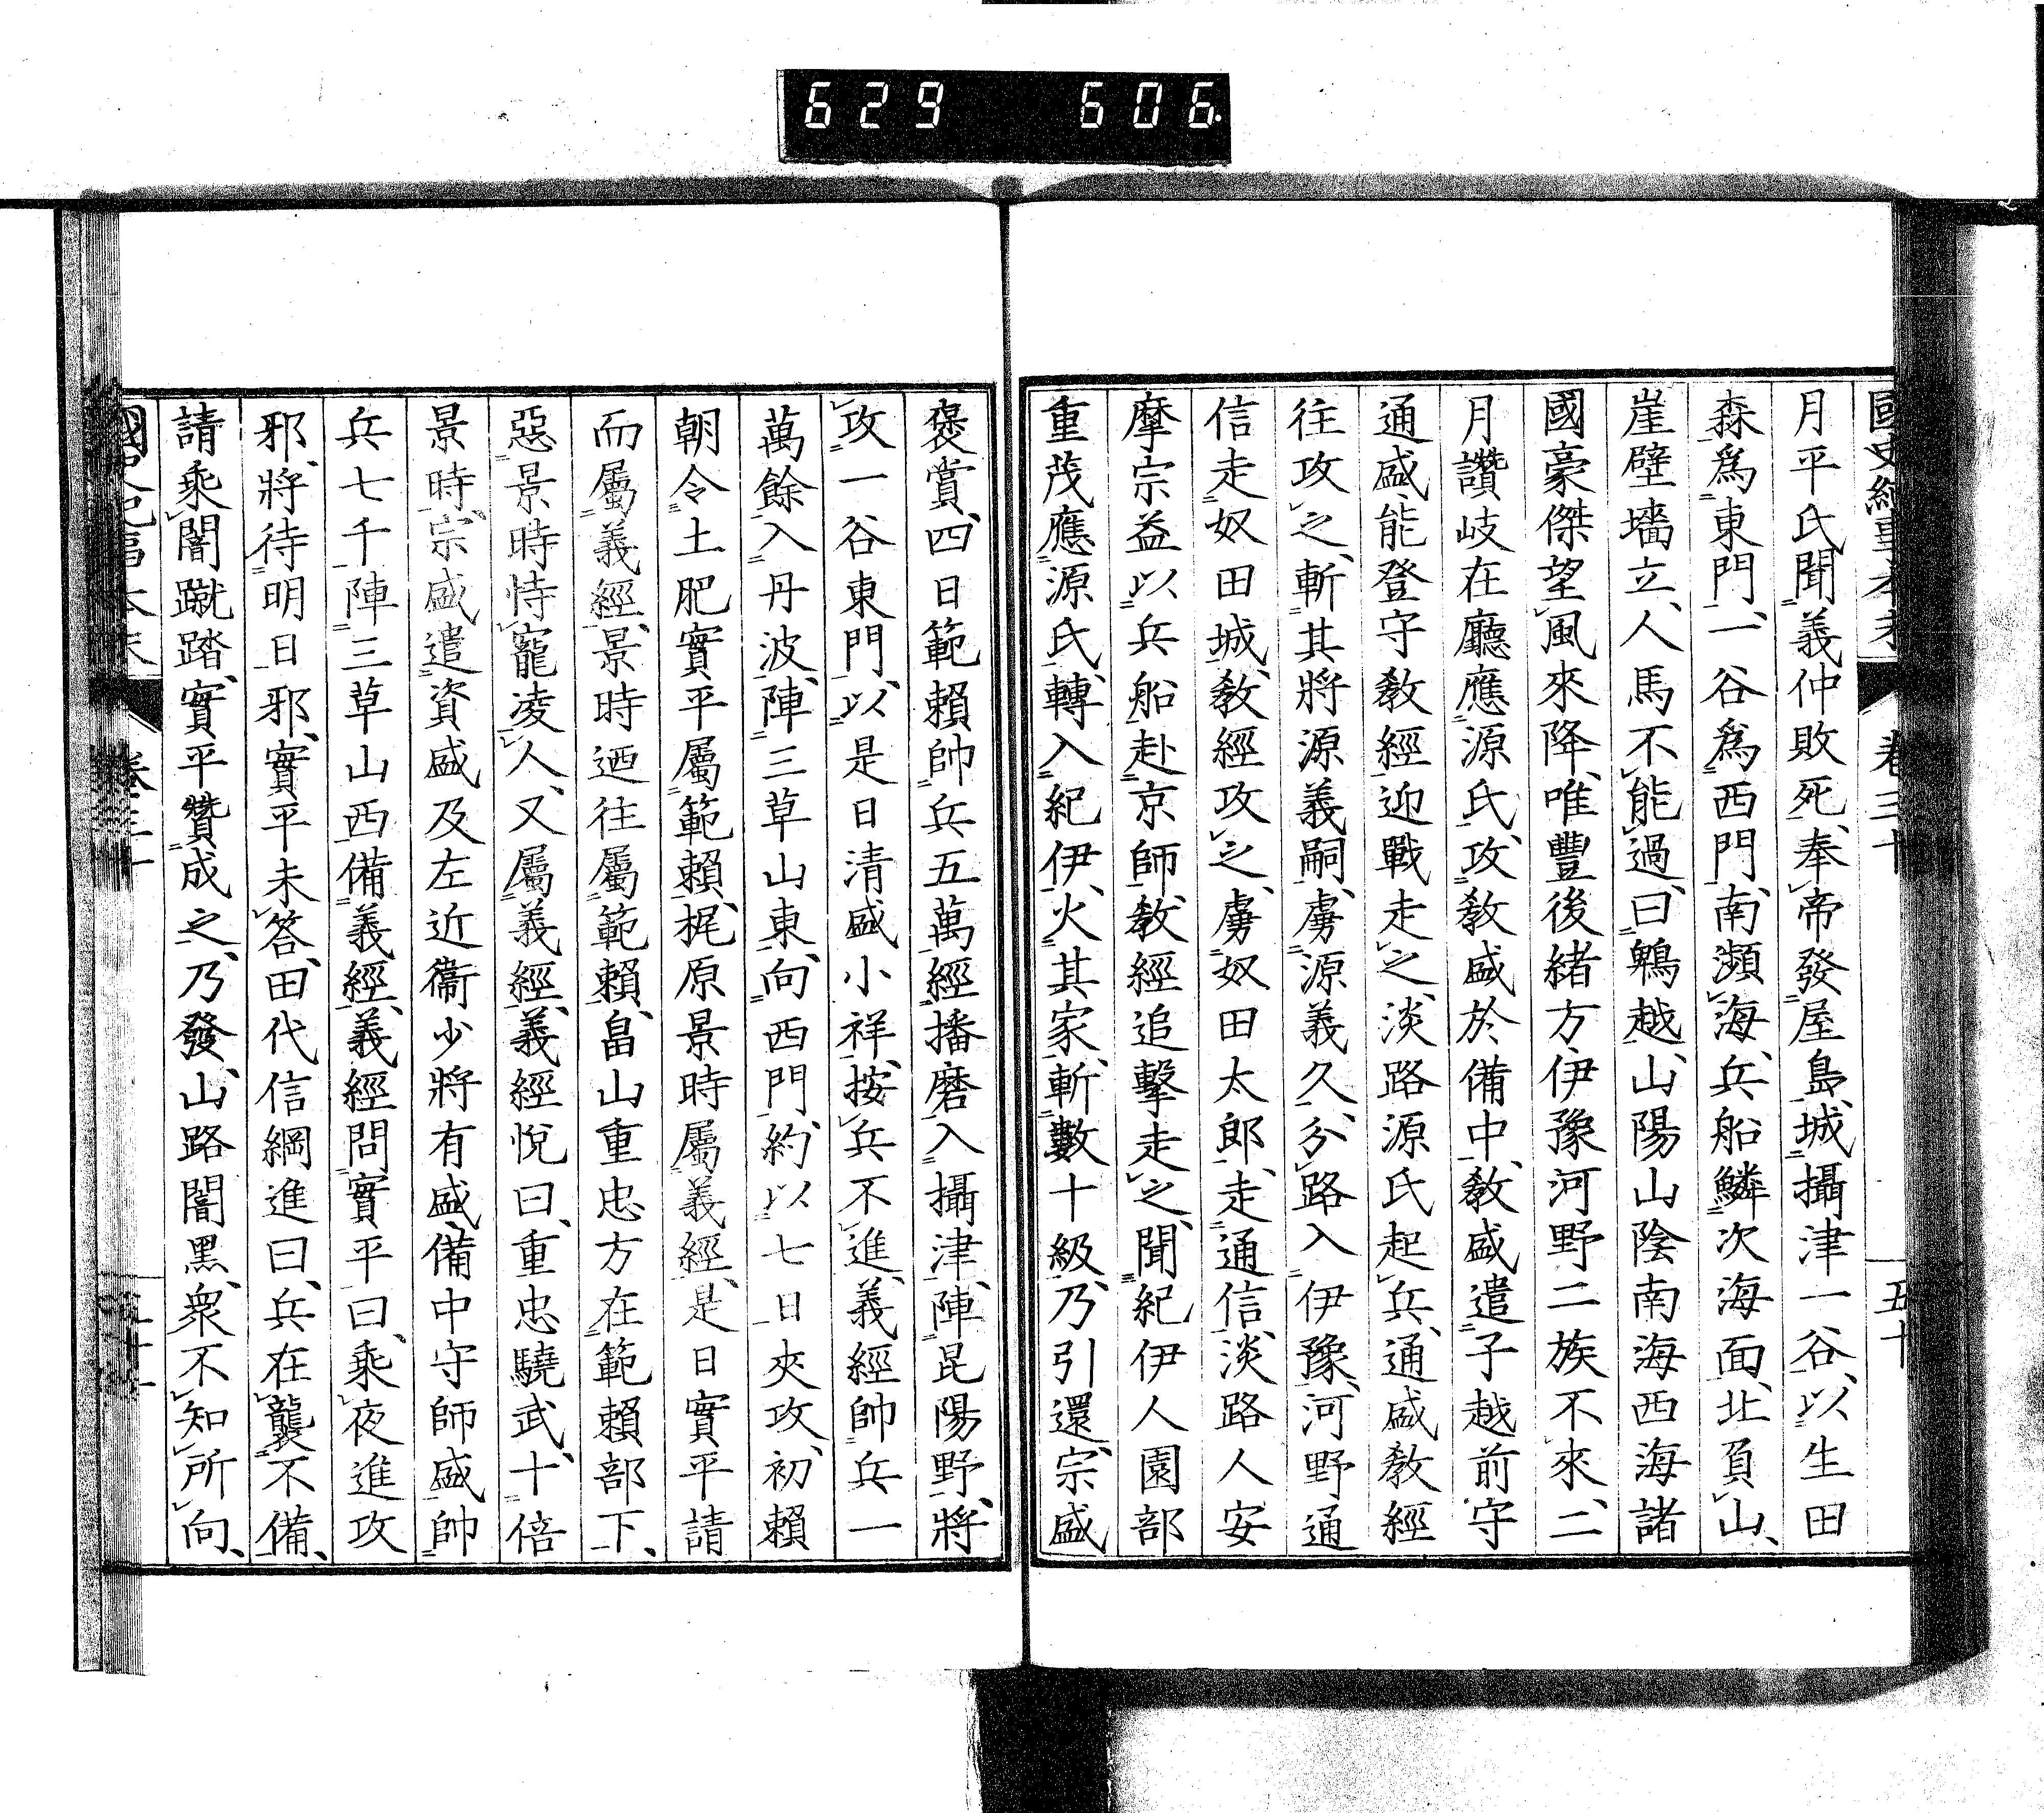 629 606.
國史紀事本末 卷三十 五十
月平氏聞義仲敗死、奉帝發屋島、城攝津一谷、以生田
森爲東門、一谷爲西門、南瀕海、兵船鱗次海面、北負山、
崖壁墻立、人馬不能過、曰鵯越、山陽山陰南海西海諸
國豪傑望風來降、唯豐後緒方伊豫河野二族不來、二
月讚岐在廳應源氏、攻敎盛於備中、敎盛遣子越前守
通盛能登守敎經迎戰走之、淡路源氏起兵、通盛敎經
往攻之、斬其將源義嗣、虜源義久、分路入伊豫、河野通
信走奴田城、敎經攻之、虜奴田太郎、走通信、淡路人安
摩宗益以兵船赴京師、敎經追擊走之、聞紀伊人園部
重茂應源氏、轉入紀伊、火其家、斬數十級、乃引還、宗盛
褒賞、四日範賴帥兵五萬經播磨入攝津、陣昆陽野、將
攻一谷東門、以是日清盛小祥、按兵不進、義經帥兵一
萬餘入丹波、陣三草山東、向西門、約以七日夾攻、初賴
朝令土肥實平屬範賴、梶原景時屬義經、是日實平請
而屬義經、景時迺往屬範賴、畠山重忠方在範賴部下、
惡景時恃寵凌人、又屬義經、義經悅曰、重忠驍武、十倍
景時、宗盛遣資盛及左近衞少將有盛、備中守師盛帥
兵七千陣三草山西備義經、義經問實平曰、乘夜進攻
邪、將待明日邪、實平未答、田代信綱進曰、兵在襲不備、
請乘闇蹴踏、實平贊成之、乃發、山路闇黑、衆不知所向、